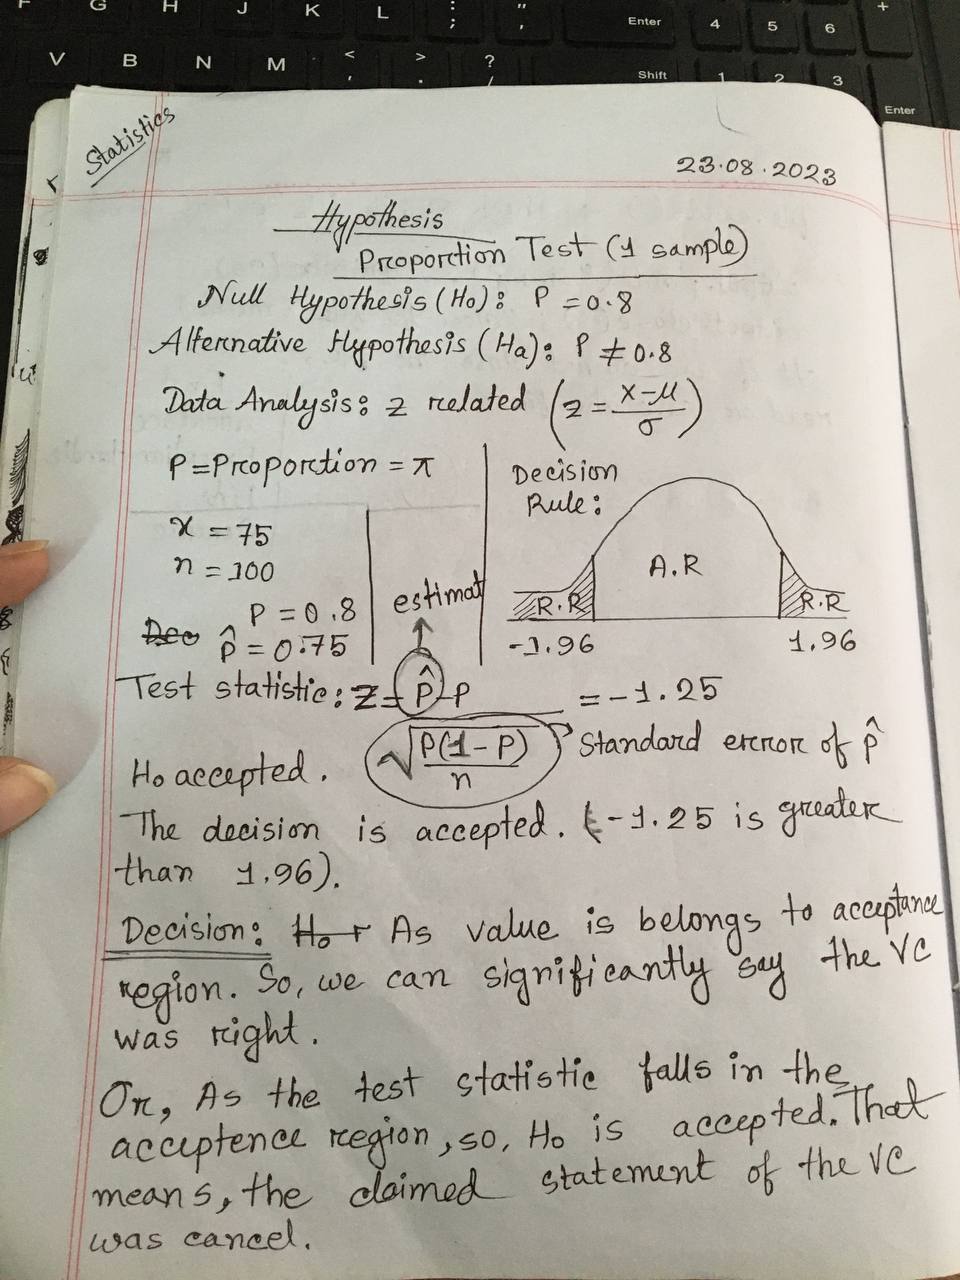 F G H J K L : ; " , Enter 4 5 6 +
V B N M < , > . ? / Shift 1 2 3 Enter
Statistics
23.08.2023
Hypothesis
Proportion Test (1 sample)
Null Hypothesis (H0): P = 0.8
Alternative Hypothesis (Ha): P ≠ 0.8
Data Analysis: z related (z = x-μ/σ)
P = Proportion = π
x = 75
n = 100
P = 0.8
Dec p̂ = 0.75
estimat
Decision
Rule:
A.R
R.R R.R
-1.96 1.96
Test statistic: z = p̂-P / √P(1-P)/n = -1.25
Standard error of p̂
H0 accepted.
The decision is accepted. (-1.25 is greater
than 1.96).
Decision: H0 r As value is belongs to acceptance
region. So, we can significantly say the VC
was right.
Or, As the test statistic falls in the
acceptence region, so, H0 is accepted. That
means, the claimed statement of the VC
was cancel.